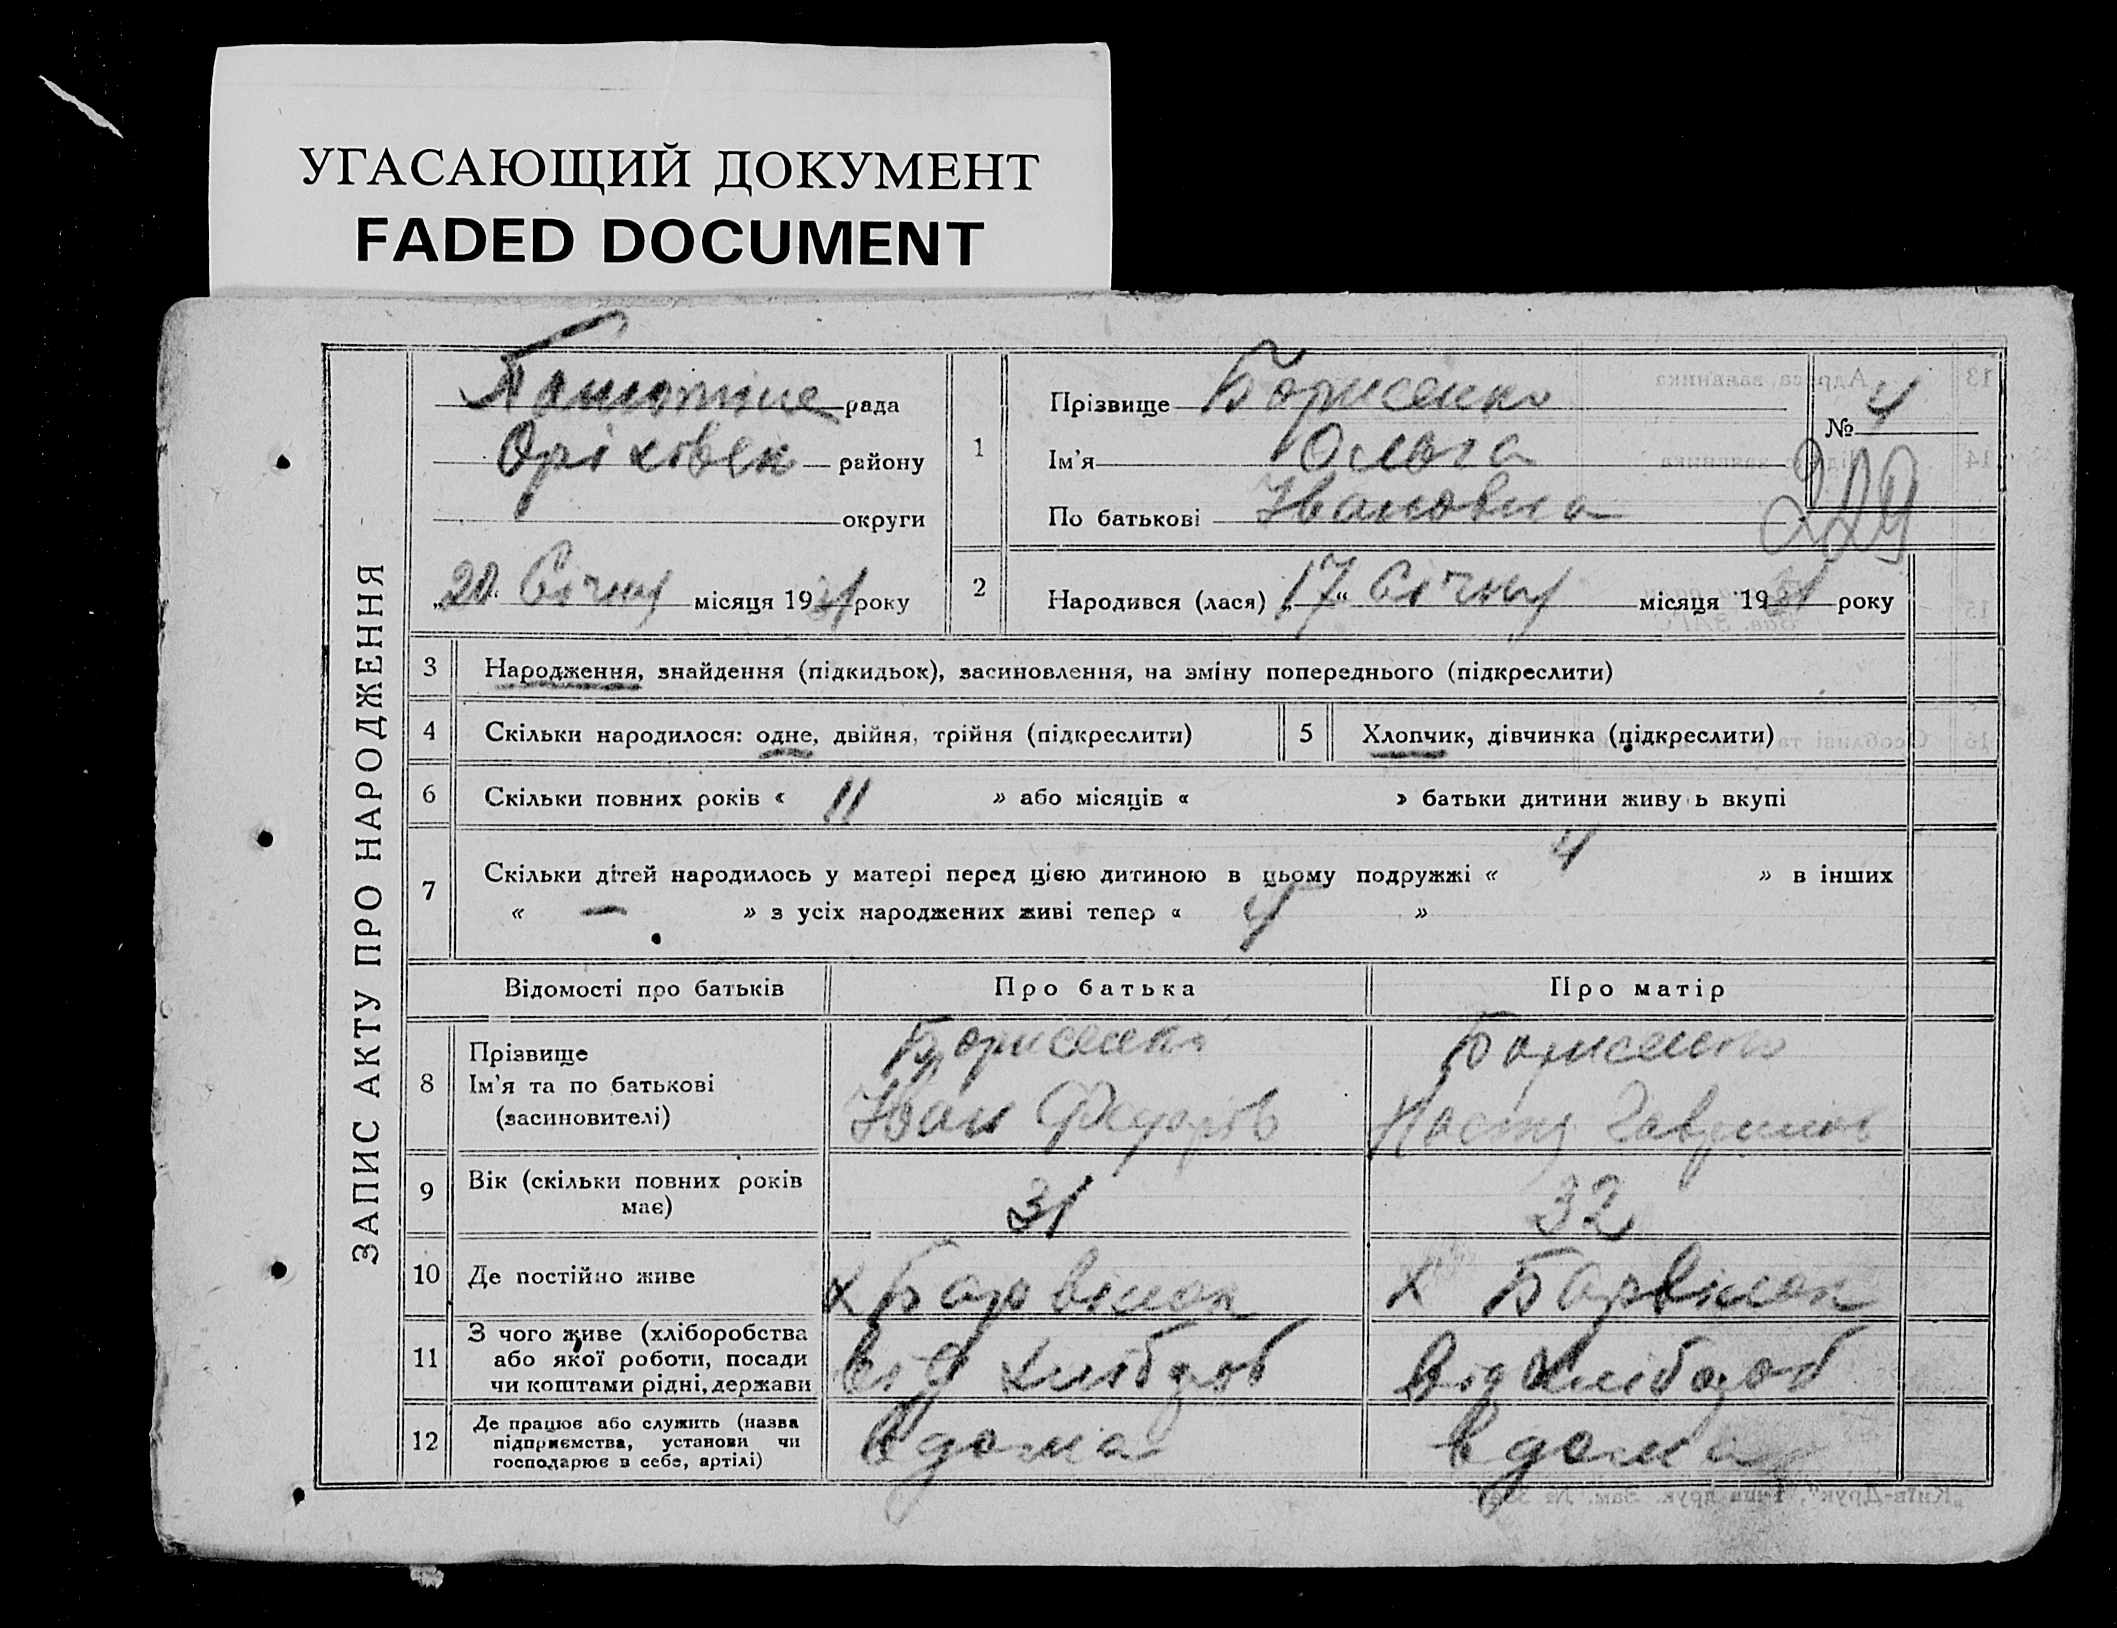 УГАСАЮЩИЙ ДОКУМЕНТ
FADED DOCUMENT
ЗАПИС АКТУ ПРО НАРОДЖЕННЯ
рада
Оріховск району
округи
„20“ Січня місяця 1931 року
1
Прізвище Борисенко
Ім’я Ольга
По батькові Івановна
№ 4
229
2
Народився (лася) „17“ Січня місяця 1931 року
3 Народження, знайдення (підкидьок), засиновлення, на зміну попереднього (підкреслити)
4 Скільки народилося: одне, двійня, трійня (підкреслити)
5 Хлопчик, дівчинка (підкреслити)
6 Скільки повних років « 11 » або місяців « » батьки дитини живу ь вкупі
7 Скільки дітей народилось у матері перед цією дитиною в цьому подружжі « 4 » в інших
« — » з усіх народжених живі тепер « 4 »
Відомості про батьків Про батька Про матір
8 Прізвище
Ім’я та по батькові
(засиновителі)
Борисенко
Іван Федорів
Борисенко
Настя Гаврилов
9 Вік (скільки повних років
має)
31
32
10 Де постійно живе
х Барвінок
х Барвінок
11 З чого живе (хліборобства
або якої роботи, посади
чи коштами рідні, держави
від хлібороб
від хлібороб
12 Де працює або служить (назва
підприємства, установи чи
господарює в себе, артілі)
вдома
вдома